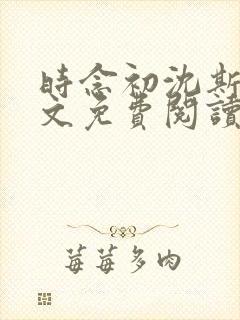 時念初沈斯
文免費閱讀
莓莓多肉